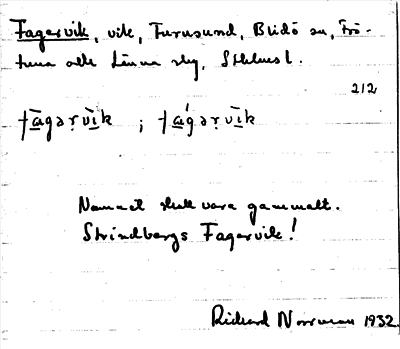 Fagervik, vik, Furusund, Blidö sn, Frö-
tuna och Länna skg, Sthlms l.
212
fāgərvīk ; fágərvīk
Namnet skall vara gammalt.
Strindbergs Fagervik!
Richard Norrman 1932.